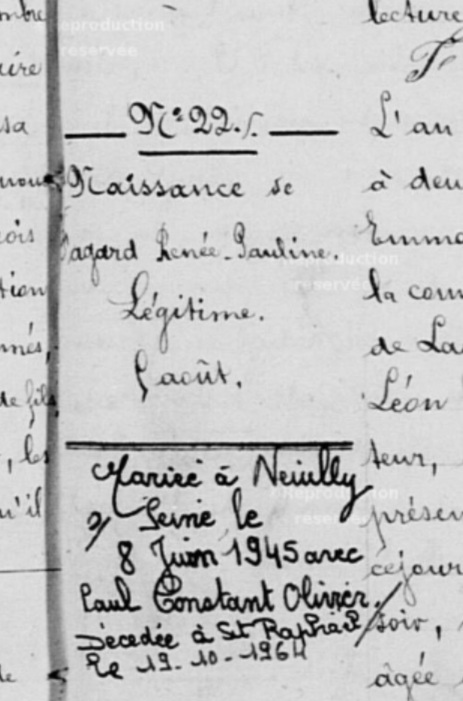 mbre
aire
sa
nous
ois
tion
més,
de fils
, les
u'il
de
Nº 22.
Naissance de
Pagard Renée-Pauline.
Légitime.
août.
Mariée à Neuilly
s/ Seine le
8 Juin 1945 avec
Paul Constant Olivier.
Décédée à St Raphaël
le 19-10-1964
lecture
L'an
à deu
Emma
la com
de La
Léon
teur,
présen
cejour
soir,
âgée
Reproduction
réservée